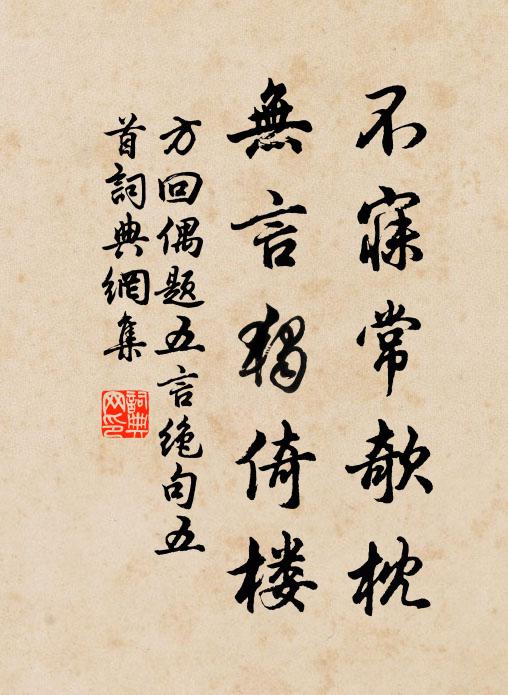 不寐常欹枕
無言獨倚楼
方回偶题五言绝句五
首詞典網集
詞典
网印